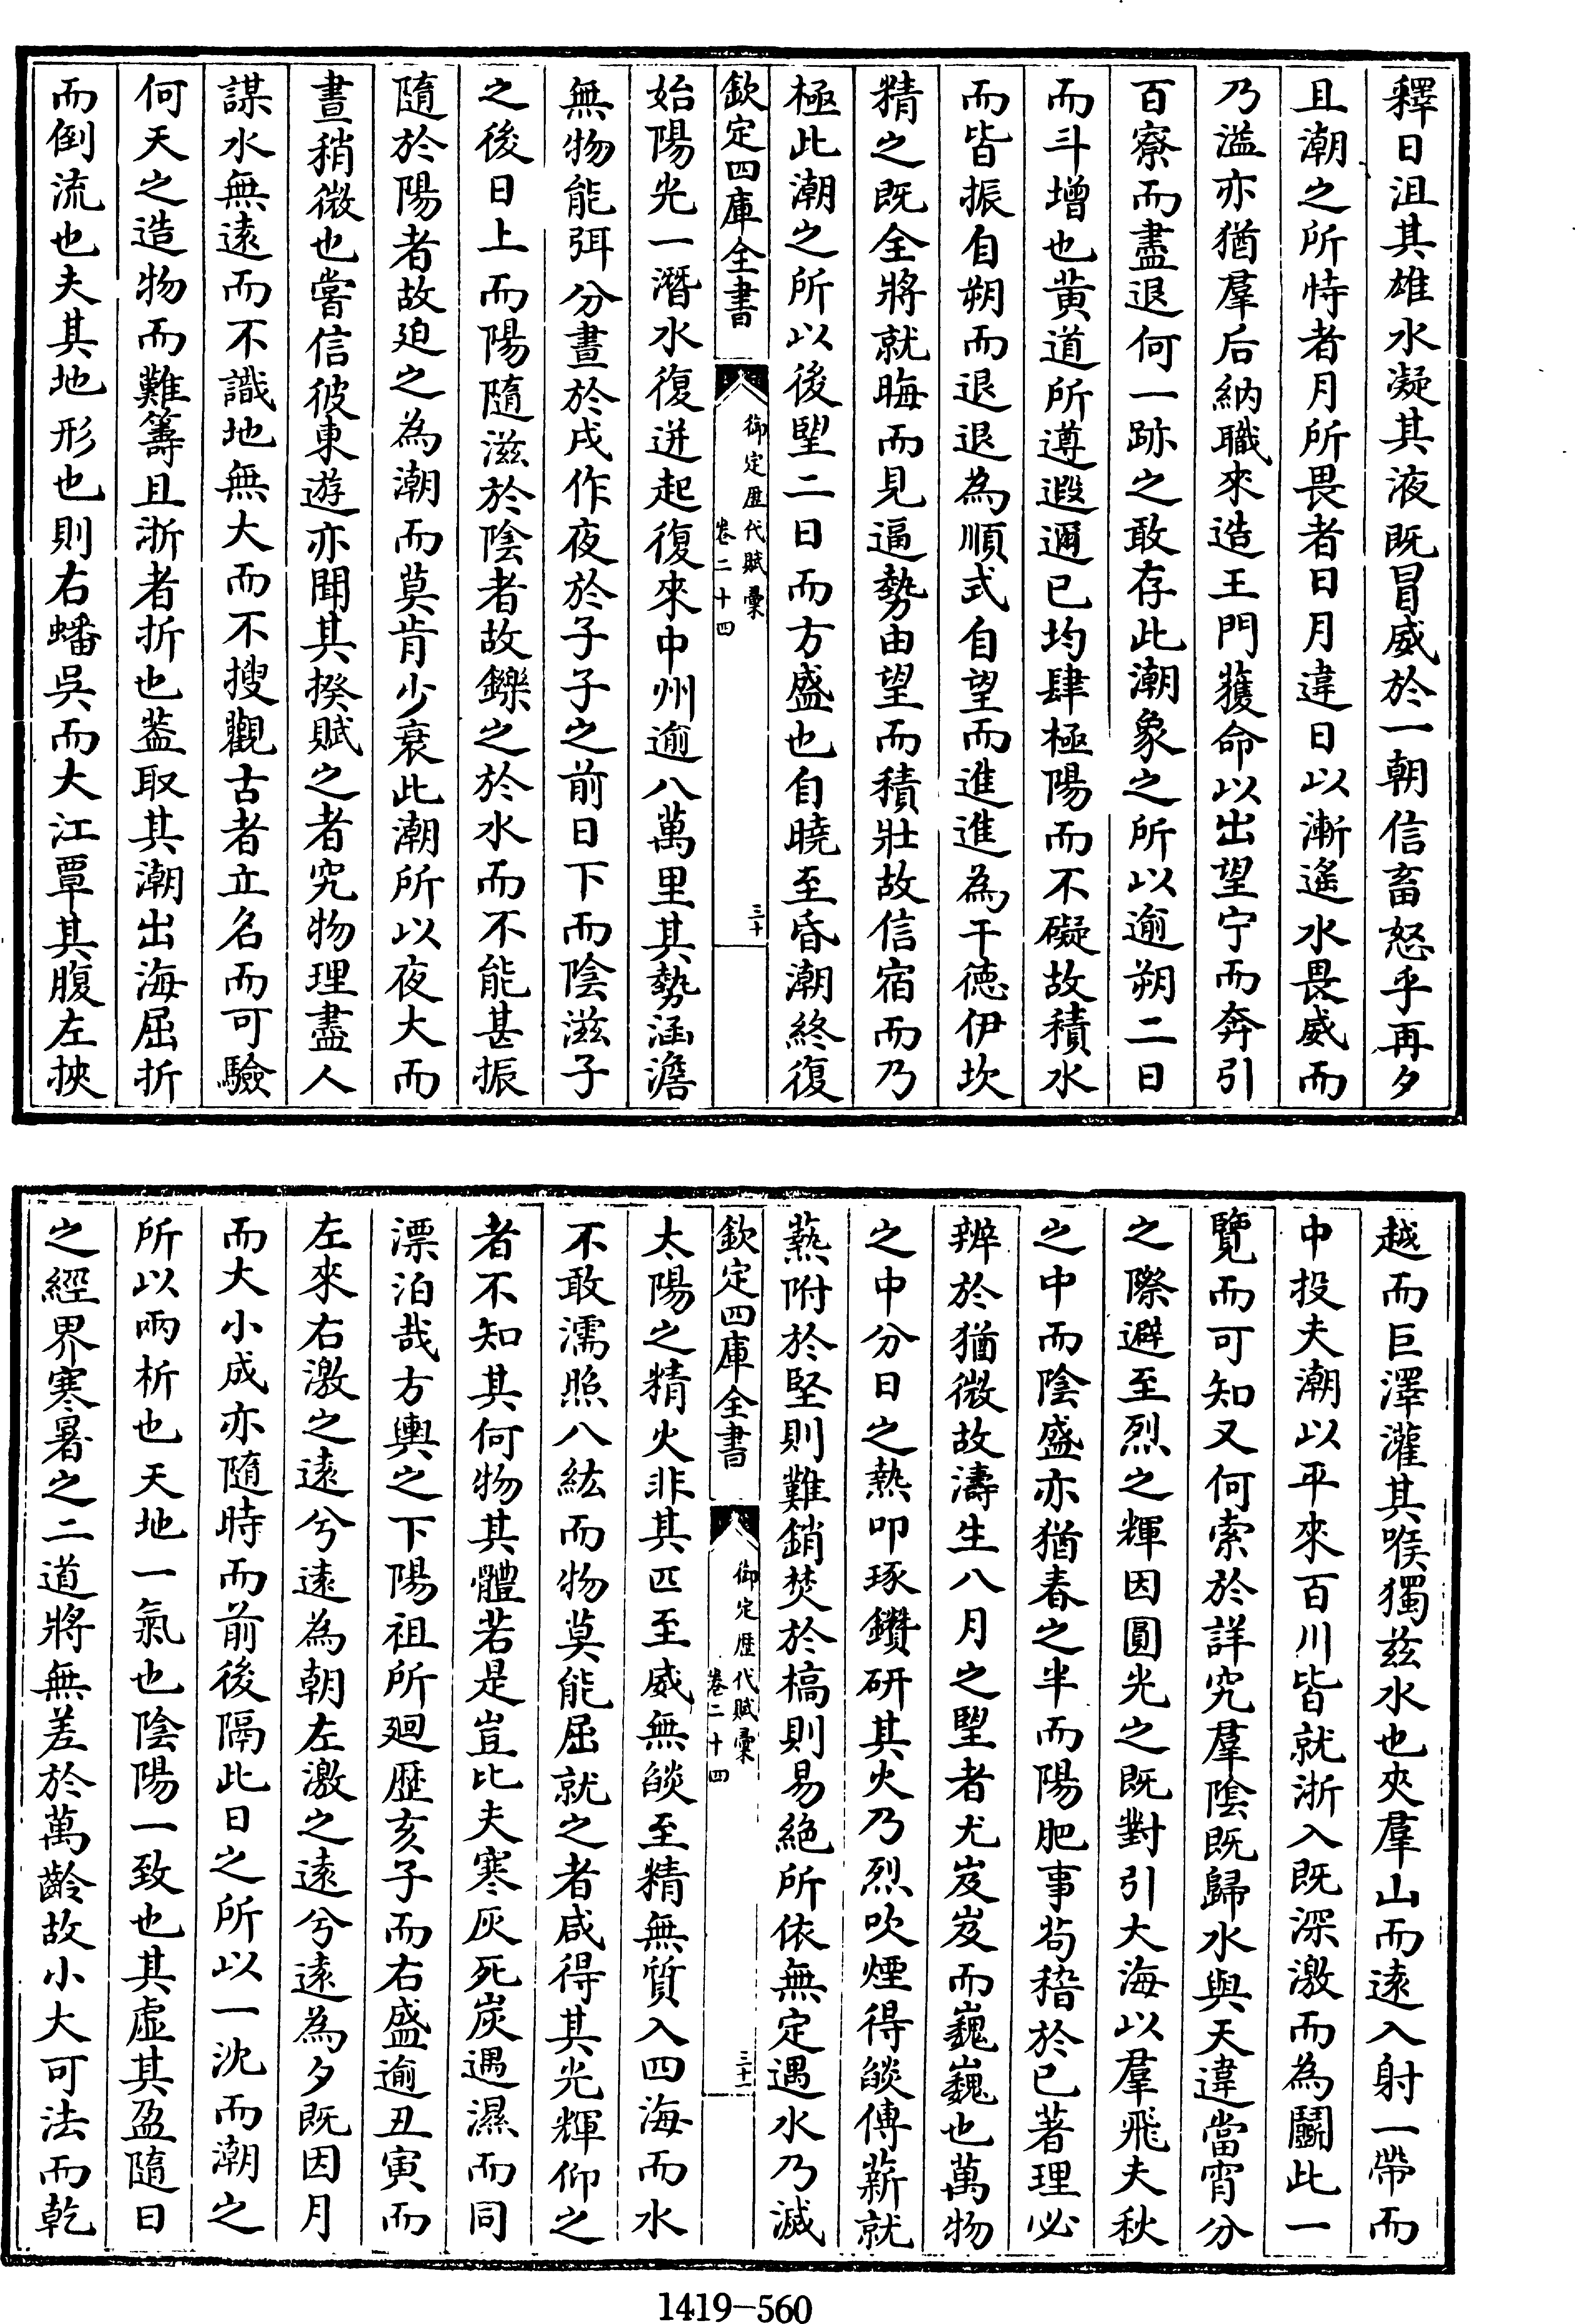 釋日沮其雄水凝其液既冒威於一朝信畜怒乎再夕
且潮之所恃者月所畏者日月違日以漸遙水畏威而
乃溢亦猶羣后納職來造王門獲命以出望宁而奔引
百寮而盡退何一跡之敢存此潮象之所以逾朔二日
而斗增也黄道所遵遐邇已均肆極陽而不礙故積水
而皆振自朔而退退為順式自望而進進為干德伊坎
精之既全將就晦而見逼勢由望而積壯故信宿而乃
極此潮之所以後朢二日而方盛也自曉至昏潮終復
欽定四庫全書
御定歴代賦彙
卷二十四
三十
始陽光一潛水復迸起復來中州逾八萬里其勢涵澹
無物能弭分晝於戌作夜於子子之前日下而陰滋子
之後日上而陽隨滋於陰者故鑠之於水而不能甚振
隨於陽者故廹之為潮而莫肯少衰此潮所以夜大而
晝稍微也嘗信彼東遊亦聞其揆賦之者究物理盡人
謀水無遠而不識地無大而不搜觀古者立名而可驗
何天之造物而難籌且浙者折也葢取其潮出海屈折
而倒流也夫其地形也則右蟠吳而大江覃其腹左挾
越而巨澤灌其喉獨兹水也夾羣山而遠入射一帶而
中投夫潮以平來百川皆就浙入既深激而為鬭此一
覽而可知又何索於詳究羣隂既歸水與天違當宵分
之際避至烈之輝因圓光之既對引大海以羣飛夫秋
之中而陰盛亦猶春之半而陽肥事茍稽於已著理必
辨於猶微故濤生八月之朢者尤岌岌而巍巍也萬物
之中分日之熱叩琢鑽研其火乃烈吹煙得燄傳薪就
爇附於堅則難銷焚於槁則易絶所依無定遇水乃滅
欽定四庫全書
御定歴代賦彙
卷二十四
三十一
太陽之精火非其匹至威無燄至精無質入四海而水
不敢濡照八紘而物莫能屈就之者咸得其光輝仰之
者不知其何物其體若是豈比夫寒灰死炭遇濕而同
漂泊哉方輿之下陽祖所廻歴亥子而右盛逾丑寅而
左來右激之遠兮遠為朝左激之遠兮遠為夕既因月
而大小成亦隨時而前後隔此日之所以一沈而潮之
所以兩析也天地一氣也陰陽一致也其虛其盈隨日
之經界寒暑之二道將無差於萬齡故小大可法而乾
1419—560